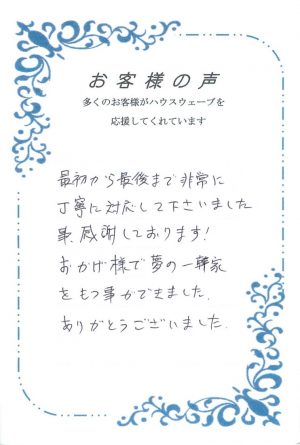 お客様の声
多くのお客様がハウスウェーブを
応援してくれています
最初から最後まで非常に
丁寧に対応して下さいました
事、感謝しております!
おかげ様で夢の一軒家
をもつ事ができました。
ありがとうございました。